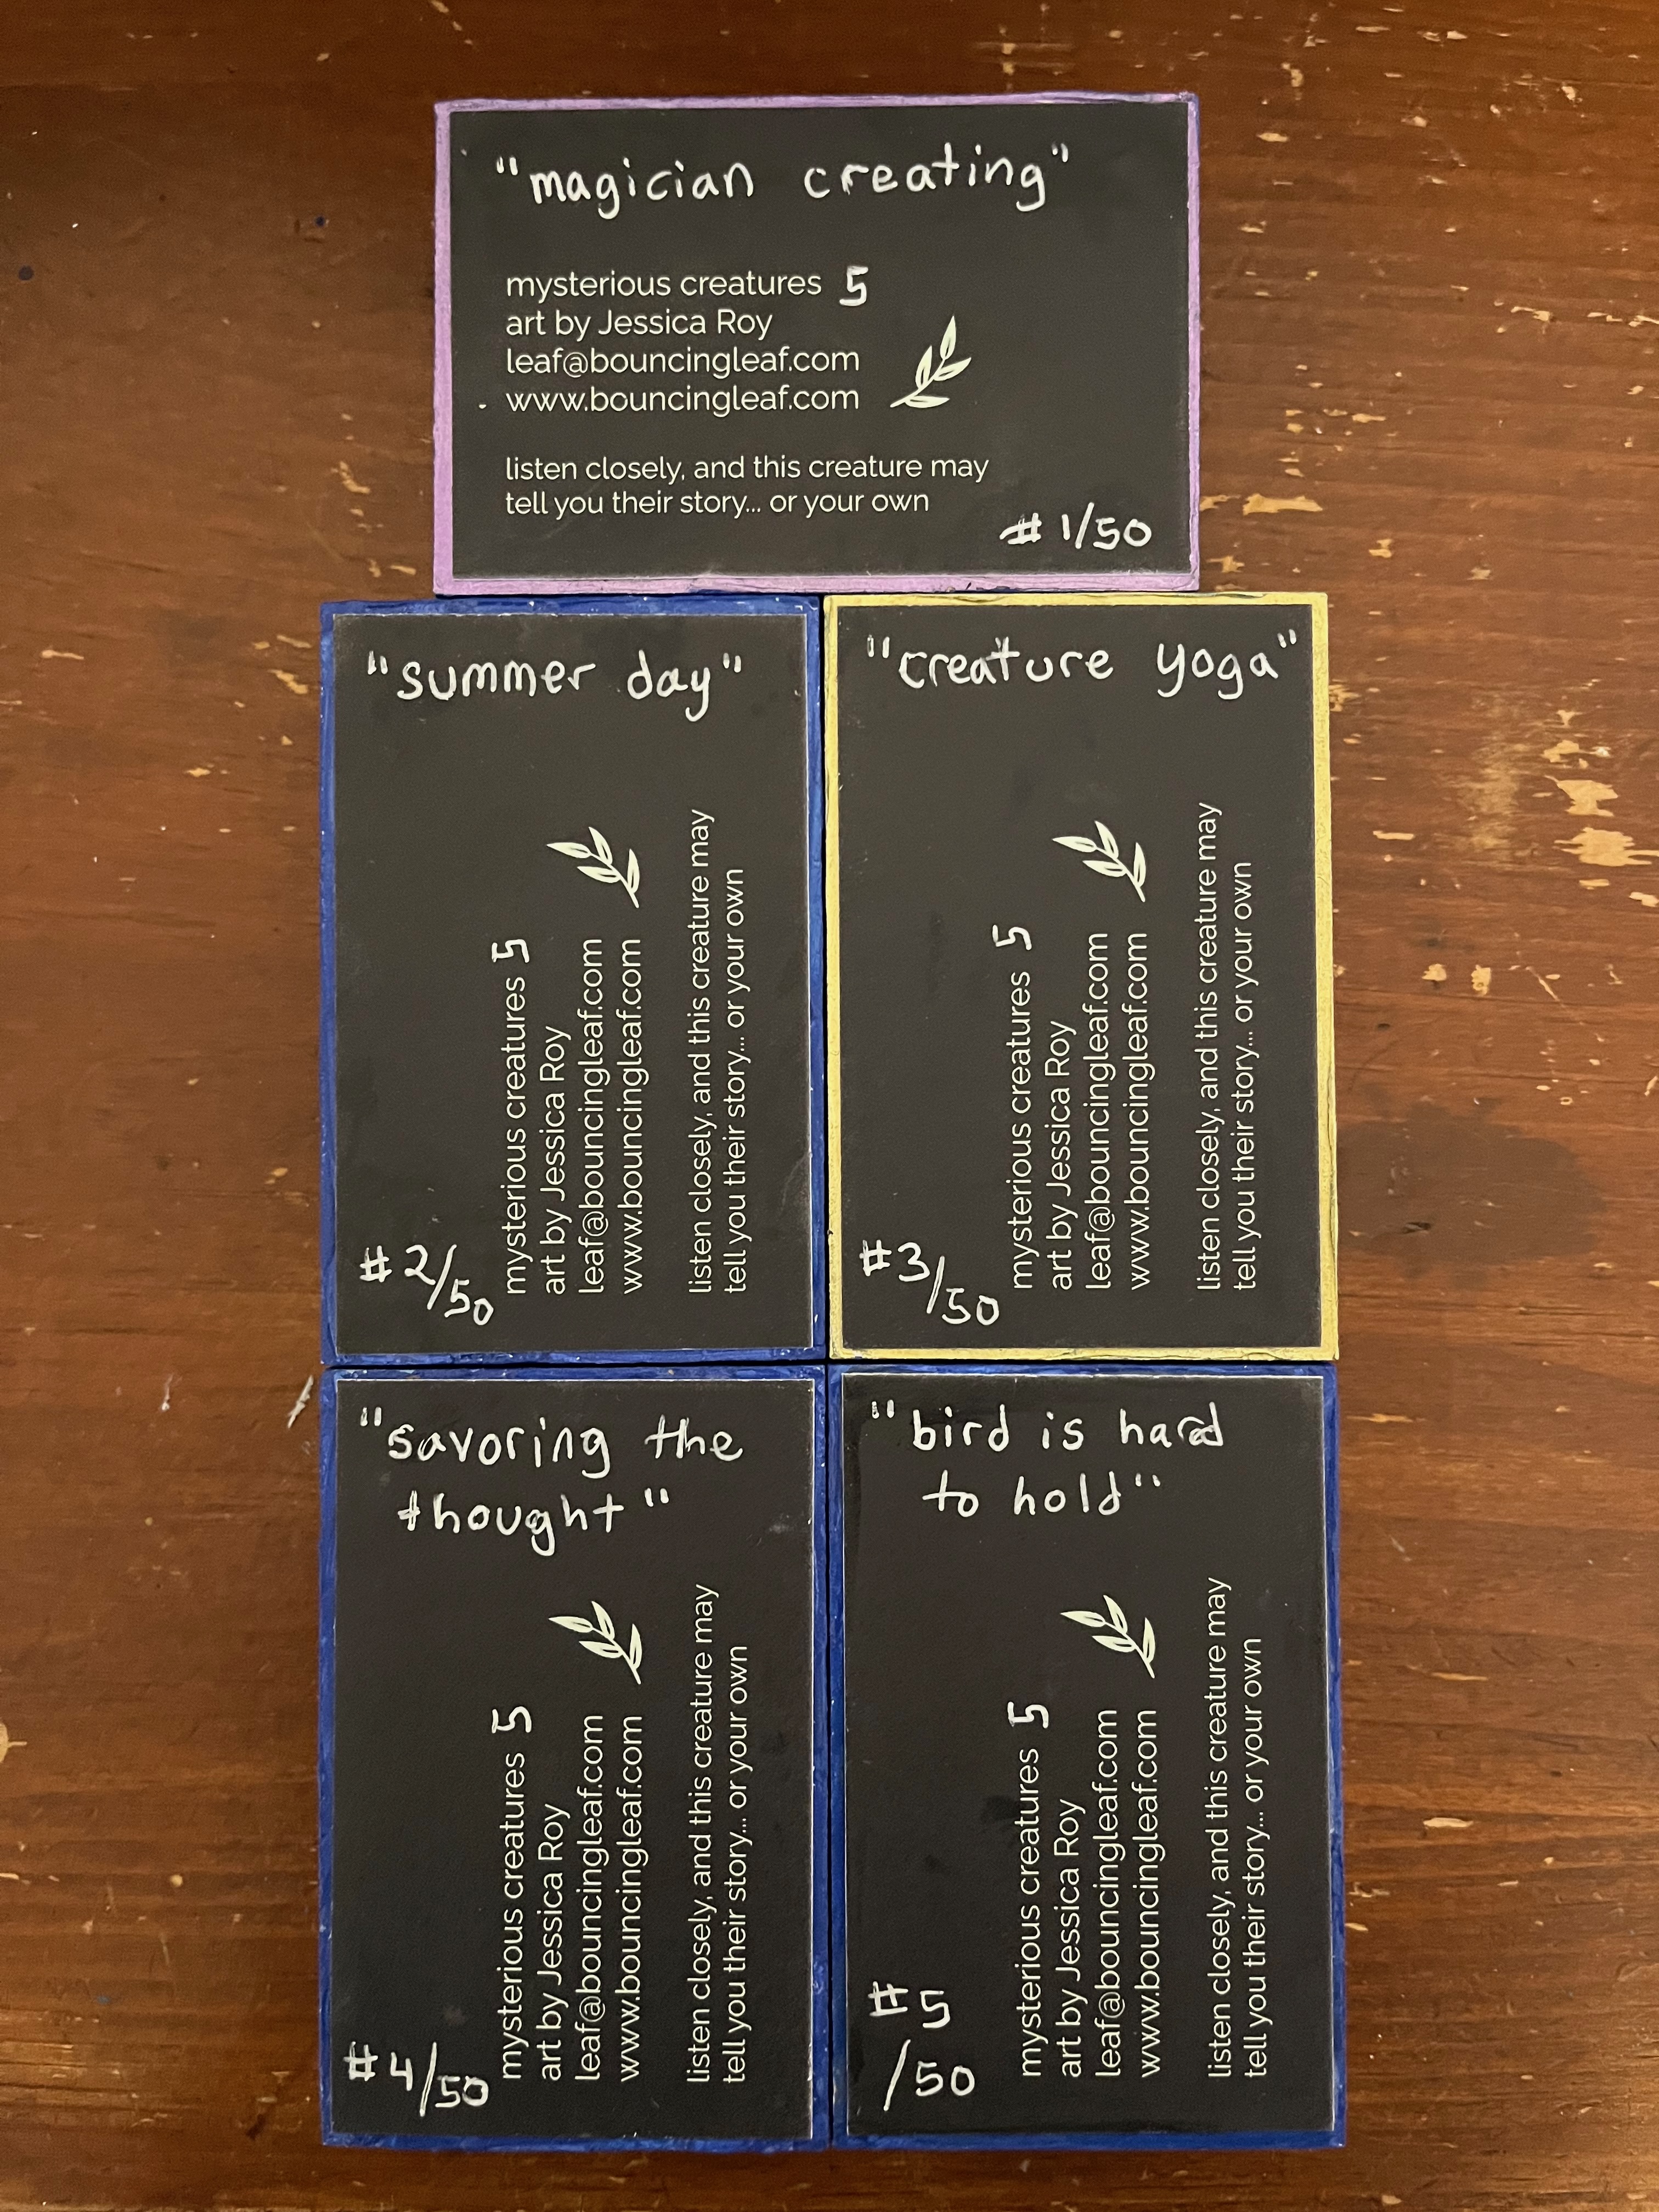 "magician creating"
mysterious creatures 5
art by Jessica Roy
leaf@bouncingleaf.com
www.bouncingleaf.com
listen closely, and this creature may
tell you their story... or your own
# 1/50
"summer day"
mysterious creatures 5
art by Jessica Roy
leaf@bouncingleaf.com
www.bouncingleaf.com
listen closely, and this creature may
tell you their story... or your own
# 2/50
"creature yoga"
mysterious creatures 5
art by Jessica Roy
leaf@bouncingleaf.com
www.bouncingleaf.com
listen closely, and this creature may
tell you their story... or your own
#3/50
"savoring the
thought"
mysterious creatures 5
art by Jessica Roy
leaf@bouncingleaf.com
www.bouncingleaf.com
listen closely, and this creature may
tell you their story... or your own
#4/50
"bird is hard
to hold"
mysterious creatures 5
art by Jessica Roy
leaf@bouncingleaf.com
www.bouncingleaf.com
listen closely, and this creature may
tell you their story... or your own
#5
/50